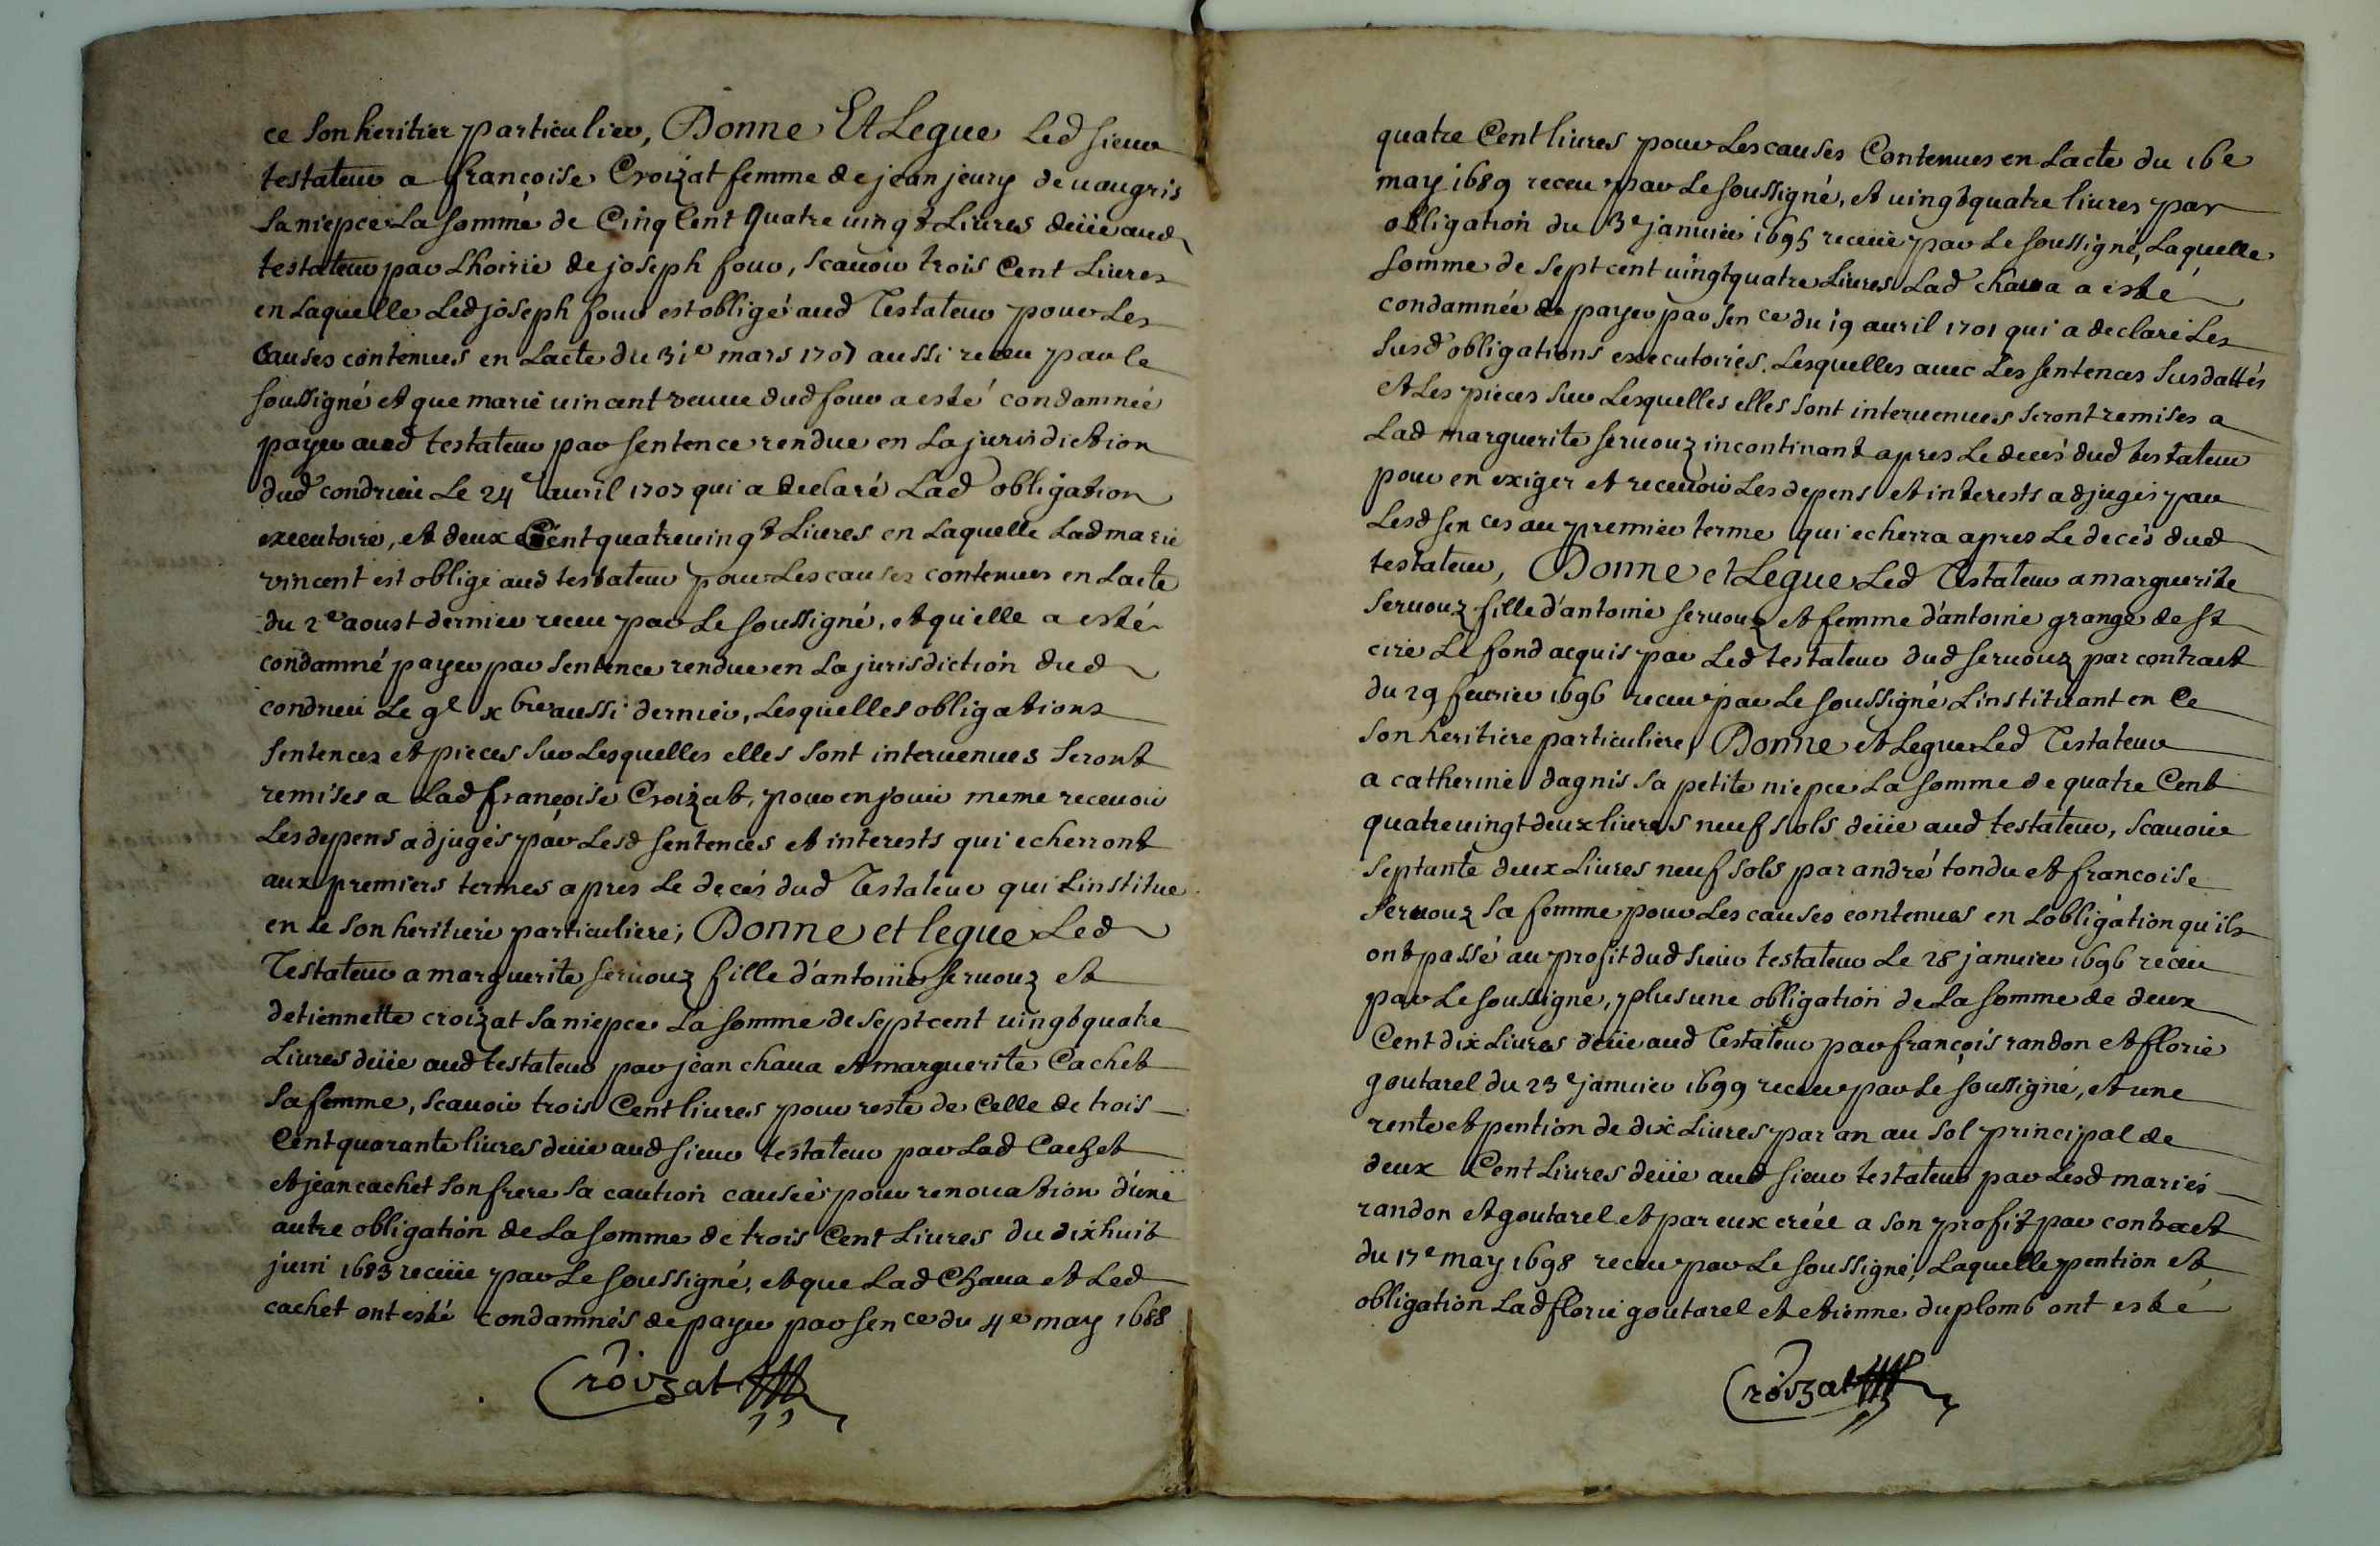 ce son heritier particulier, Donne Et Legue Led sieur
testateur a françoise Croizat femme de jean jeury de uaugris
sa niepce La somme de Cinq Cent Quatre uingt Liures deüe aud
testateur par Lhoirie de joseph four, scauoir trois Cent Liures
en Laquelle Led joseph four est obligé aud Testateur pour Les
Causes contenues en Lacte du 31e mars 1707 aussi receu par le
soussigné et que marie uincent veuue dud four a esté condamnée
payer aud testateur par sentence rendue en La jurisdiction
dud condrieu Le 24e auril 1707 qui a declaré Lad obligation
executoire, et deux Cent quatre uingt Liures en Laquelle Lad marie
vincent est obligé aud testateur pour Les causes contenues en Lacte
du 2e aoust dernier receu par Le soussigné, et qu'elle a esté
condamné payer par sentence rendue en La jurisdiction dud
condrieu Le 9e xbre aussi dernier, Lesquelles obligations
sentences et pieces sur Lesquelles elles sont interuenues seront
remises a Lad françoise Croizat, pour en jouir meme receuoir
Les depens adjugés par Lesd sentences et interests qui echerront
aux premiers termes apres Le decés dud Testateur qui Linstitue
en ce son heritiere particuliere, Donne et legue Led
Testateur a marguerite seruouz fille d'antoine seruouz et
detiennette croizat sa niepce La somme de sept cent uingt quatre
Liures deüe aud testateur par jean chaua et marguerite Cachet
sa femme, scauoir trois Cent liures pour reste de Celle de trois
Cent quarante liures deüe aud sieur testateur par Lad Cachet
et jean cachet son frere sa caution causée pour renouation d'une
autre obligation de La somme de trois Cent Liures du dixhuit
juin 1683 receüe par Le soussigné, et que Lad Chaua et Led
cachet ont esté condamnés de payer par sence du 4e may 1688
Croizat
quatre Cent liures pour Les causes Contenues en Lacte du 16e
may 1689 receu par Le soussigné, et uingt quatre liures par
obligation du 3e januier 1695 receue par Le soussigné, Laquelle
somme de sept cent uingt quatre Liures Lad chaua a esté
condamnée de payer par sence du 19 auril 1701 qui a declaré Les
susd obligations executoires. Lesquelles auec Les sentences susdattés
et Les pieces sur Lesquelles elles sont interuenues seront remises a
Lad marguerite seruouz incontinant apres Le decés dud testateur
pour en exiger et receuoir Les depens et interests adjugés par
Lesd sences au premier terme qui echerra apres Le decés dud
testateur, Donne et Legue Led Testateur a marguerite
Seruouz fille d'antoine seruouz et femme d'antoine grange de st
cire Le fond acquis par Led testateur dud seruouz par contract
du 29 feurier 1696 receu par Le soussigné Linstituant en Ce
son heritiere particuliere, Donne et Legue Led Testateur
a catherine dagnis sa petite niepce La somme de quatre Cent
quatre uingt deux liures neuf sols deüe aud testateur, scauoir
septante deux Liures neuf sols par andré tondu et francoise
seruouz sa femme pour Les causes contenues en Lobligation qu'ils
ont passé au profit dud sieur testateur Le 28 januier 1696 receu
par Le soussigne, plus une obligation de La somme de deux
Cent dix Liures deüe aud Testateur par françois randon et florie
goutarel du 23e januier 1699 receu par Le soussigné, et une
rente et pention de dix Liures par an au sol principal de
deux Cent Liures deüe aud sieur testateur par Lesd mariés
randon et goutarel et par eux créée a son profit par contract
du 17e may 1698 receu par Le soussigné, Laquelle pention et
obligation Lad florie goutarel et etienne duplomb ont esté
Croizat